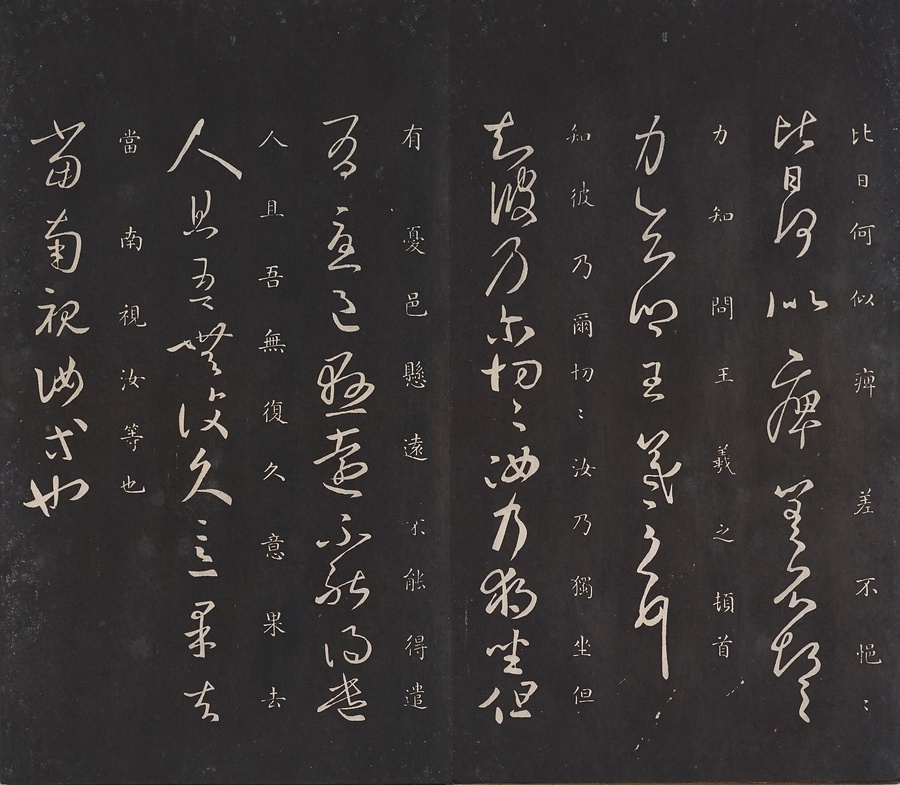 比日何似痺差不悒〻
比日何似痺差不悒〻
力知問王羲之頓首
力知問王羲之頓首
知彼乃爾切〻汝乃獨坐但
知彼乃爾切〻汝乃獨坐但
有憂邑懸遠不能得遣
有憂邑懸遠不能得遣
人且吾無復久意果去
人且吾無復久意果去
當南視汝等也
當南視汝等也